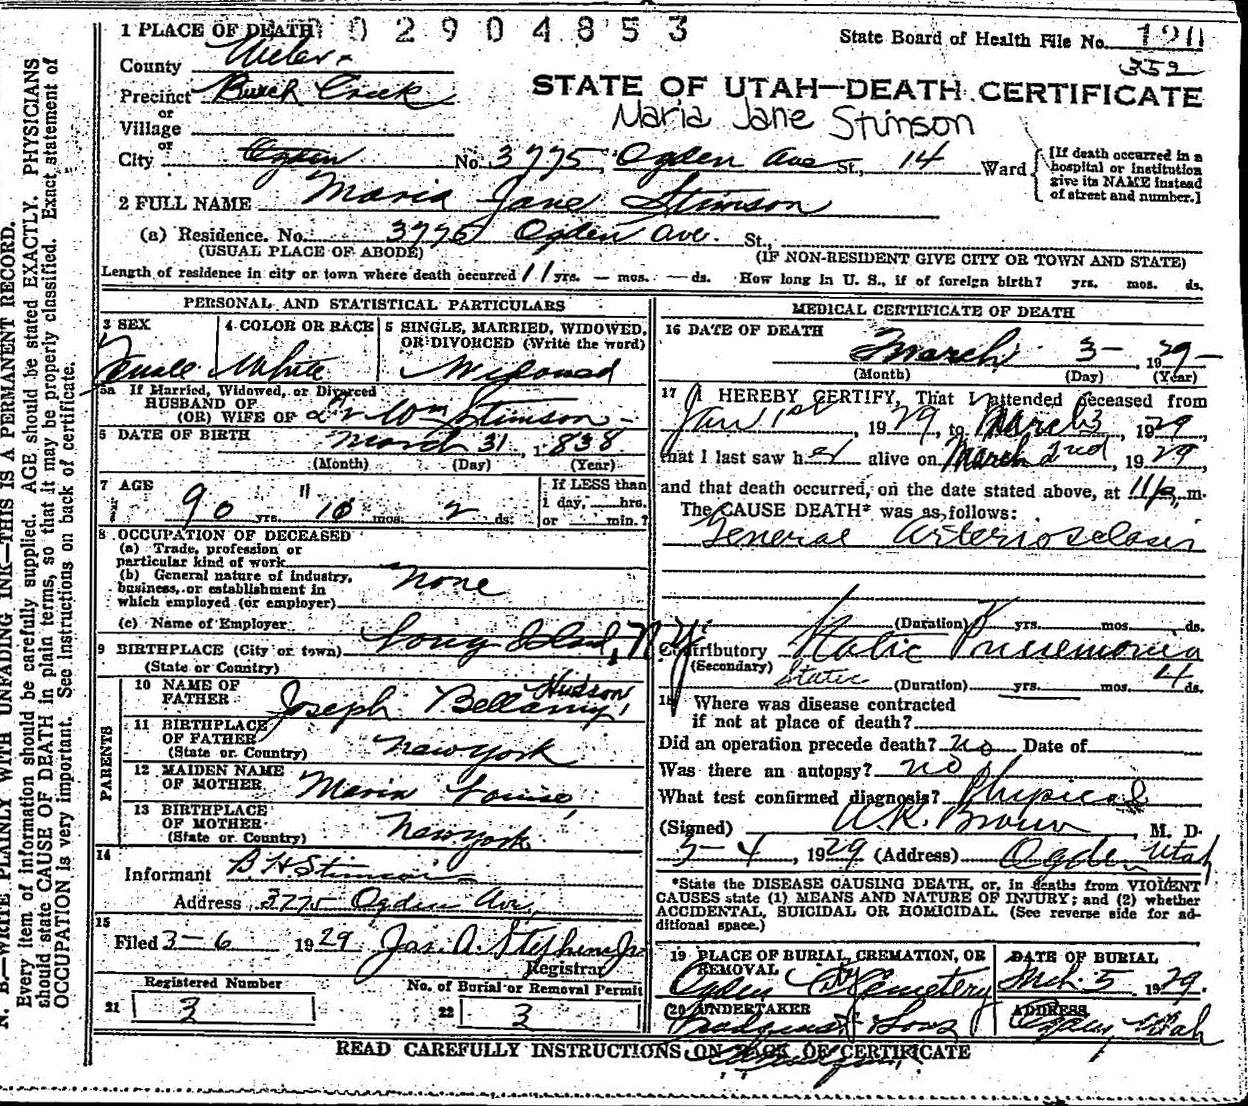 1 PLACE OF DEATH 002904853
State Board of Health File No. 120
352
County Weber
Precinct Burch Creek
or
Village
or
City Ogden No. 3775 Ogden Ave St., 14 Ward
STATE OF UTAH—DEATH CERTIFICATE
Maria Jane Stimson
[If death occurred in a
hospital or institution
give its NAME instead
of street and number.]
2 FULL NAME Maria Jane Stimson
(a) Residence. No. 3775 Ogden Ave. St.,
(USUAL PLACE OF ABODE) (IF NON-RESIDENT GIVE CITY OR TOWN AND STATE)
Length of residence in city or town where death occurred 11 yrs. — mos. — ds. How long in U. S., if of foreign birth? yrs. mos. ds.
PERSONAL AND STATISTICAL PARTICULARS
3 SEX 4 COLOR OR RACE 5 SINGLE, MARRIED, WIDOWED,
OR DIVORCED (Write the word)
Female White Widowed
5a If Married, Widowed, or Divorced
HUSBAND OF
(OR) WIFE OF Wm Stimson
6 DATE OF BIRTH March 31, 1838
(Month) (Day) (Year)
7 AGE 90 yrs. 11 mos. 2 ds.
If LESS than
1 day, hrs.
or min.?
8 OCCUPATION OF DECEASED
(a) Trade, profession or
particular kind of work
(b) General nature of industry,
business, or establishment in
which employed (or employer) none
(c) Name of Employer
9 BIRTHPLACE (City or town) Long Island, N.Y.
(State or Country)
PARENTS
10 NAME OF
FATHER Joseph Bellamy Hudson
11 BIRTHPLACE
OF FATHER
(State or Country) New York
12 MAIDEN NAME
OF MOTHER Maria Louise
13 BIRTHPLACE
OF MOTHER
(State or Country) New York
14
Informant B H Stimson
Address 3775 Ogden Ave.
15
Filed 3-6 1929 Jas. A. Stephens Jr
Registrar
Registered Number No. of Burial or Removal Permit
21 3 22 3
MEDICAL CERTIFICATE OF DEATH
16 DATE OF DEATH
March 3- 1929
(Month) (Day) (Year)
17 I HEREBY CERTIFY, That I attended deceased from
Jan 1st, 1929, to March 3, 1929,
that I last saw her alive on March 2nd, 1929,
and that death occurred, on the date stated above, at m.
The CAUSE DEATH* was as follows:
General Arteriosclosis
(Duration) yrs. mos. ds.
Contributory Static Pneumonia
(Secondary) Static
(Duration) yrs. mos. 4 ds.
18 Where was disease contracted
if not at place of death?
Did an operation precede death? no Date of
Was there an autopsy? no
What test confirmed diagnosis? Physical
(Signed) A.K. Brown, M. D.
3-4, 1929 (Address) Ogden Utah
*State the DISEASE CAUSING DEATH, or, in deaths from VIOLENT
CAUSES state (1) MEANS AND NATURE OF INJURY; and (2) whether
ACCIDENTAL, SUICIDAL OR HOMICIDAL. (See reverse side for ad-
ditional space.)
19 PLACE OF BURIAL, CREMATION, OR
REMOVAL
DATE OF BURIAL
Ogden City Cemetery Mch. 5 1929.
20 UNDERTAKER ADDRESS
& Sons Ogden, Utah
READ CAREFULLY INSTRUCTIONS ON BACK OF CERTIFICATE
N. B.—WRITE PLAINLY WITH UNFADING INK—THIS IS A PERMANENT RECORD.
Every item of information should be carefully supplied. AGE should be stated EXACTLY. PHYSICIANS
should state CAUSE OF DEATH in plain terms, so that it may be properly classified. Exact statement of
OCCUPATION is very important. See instructions on back of certificate.